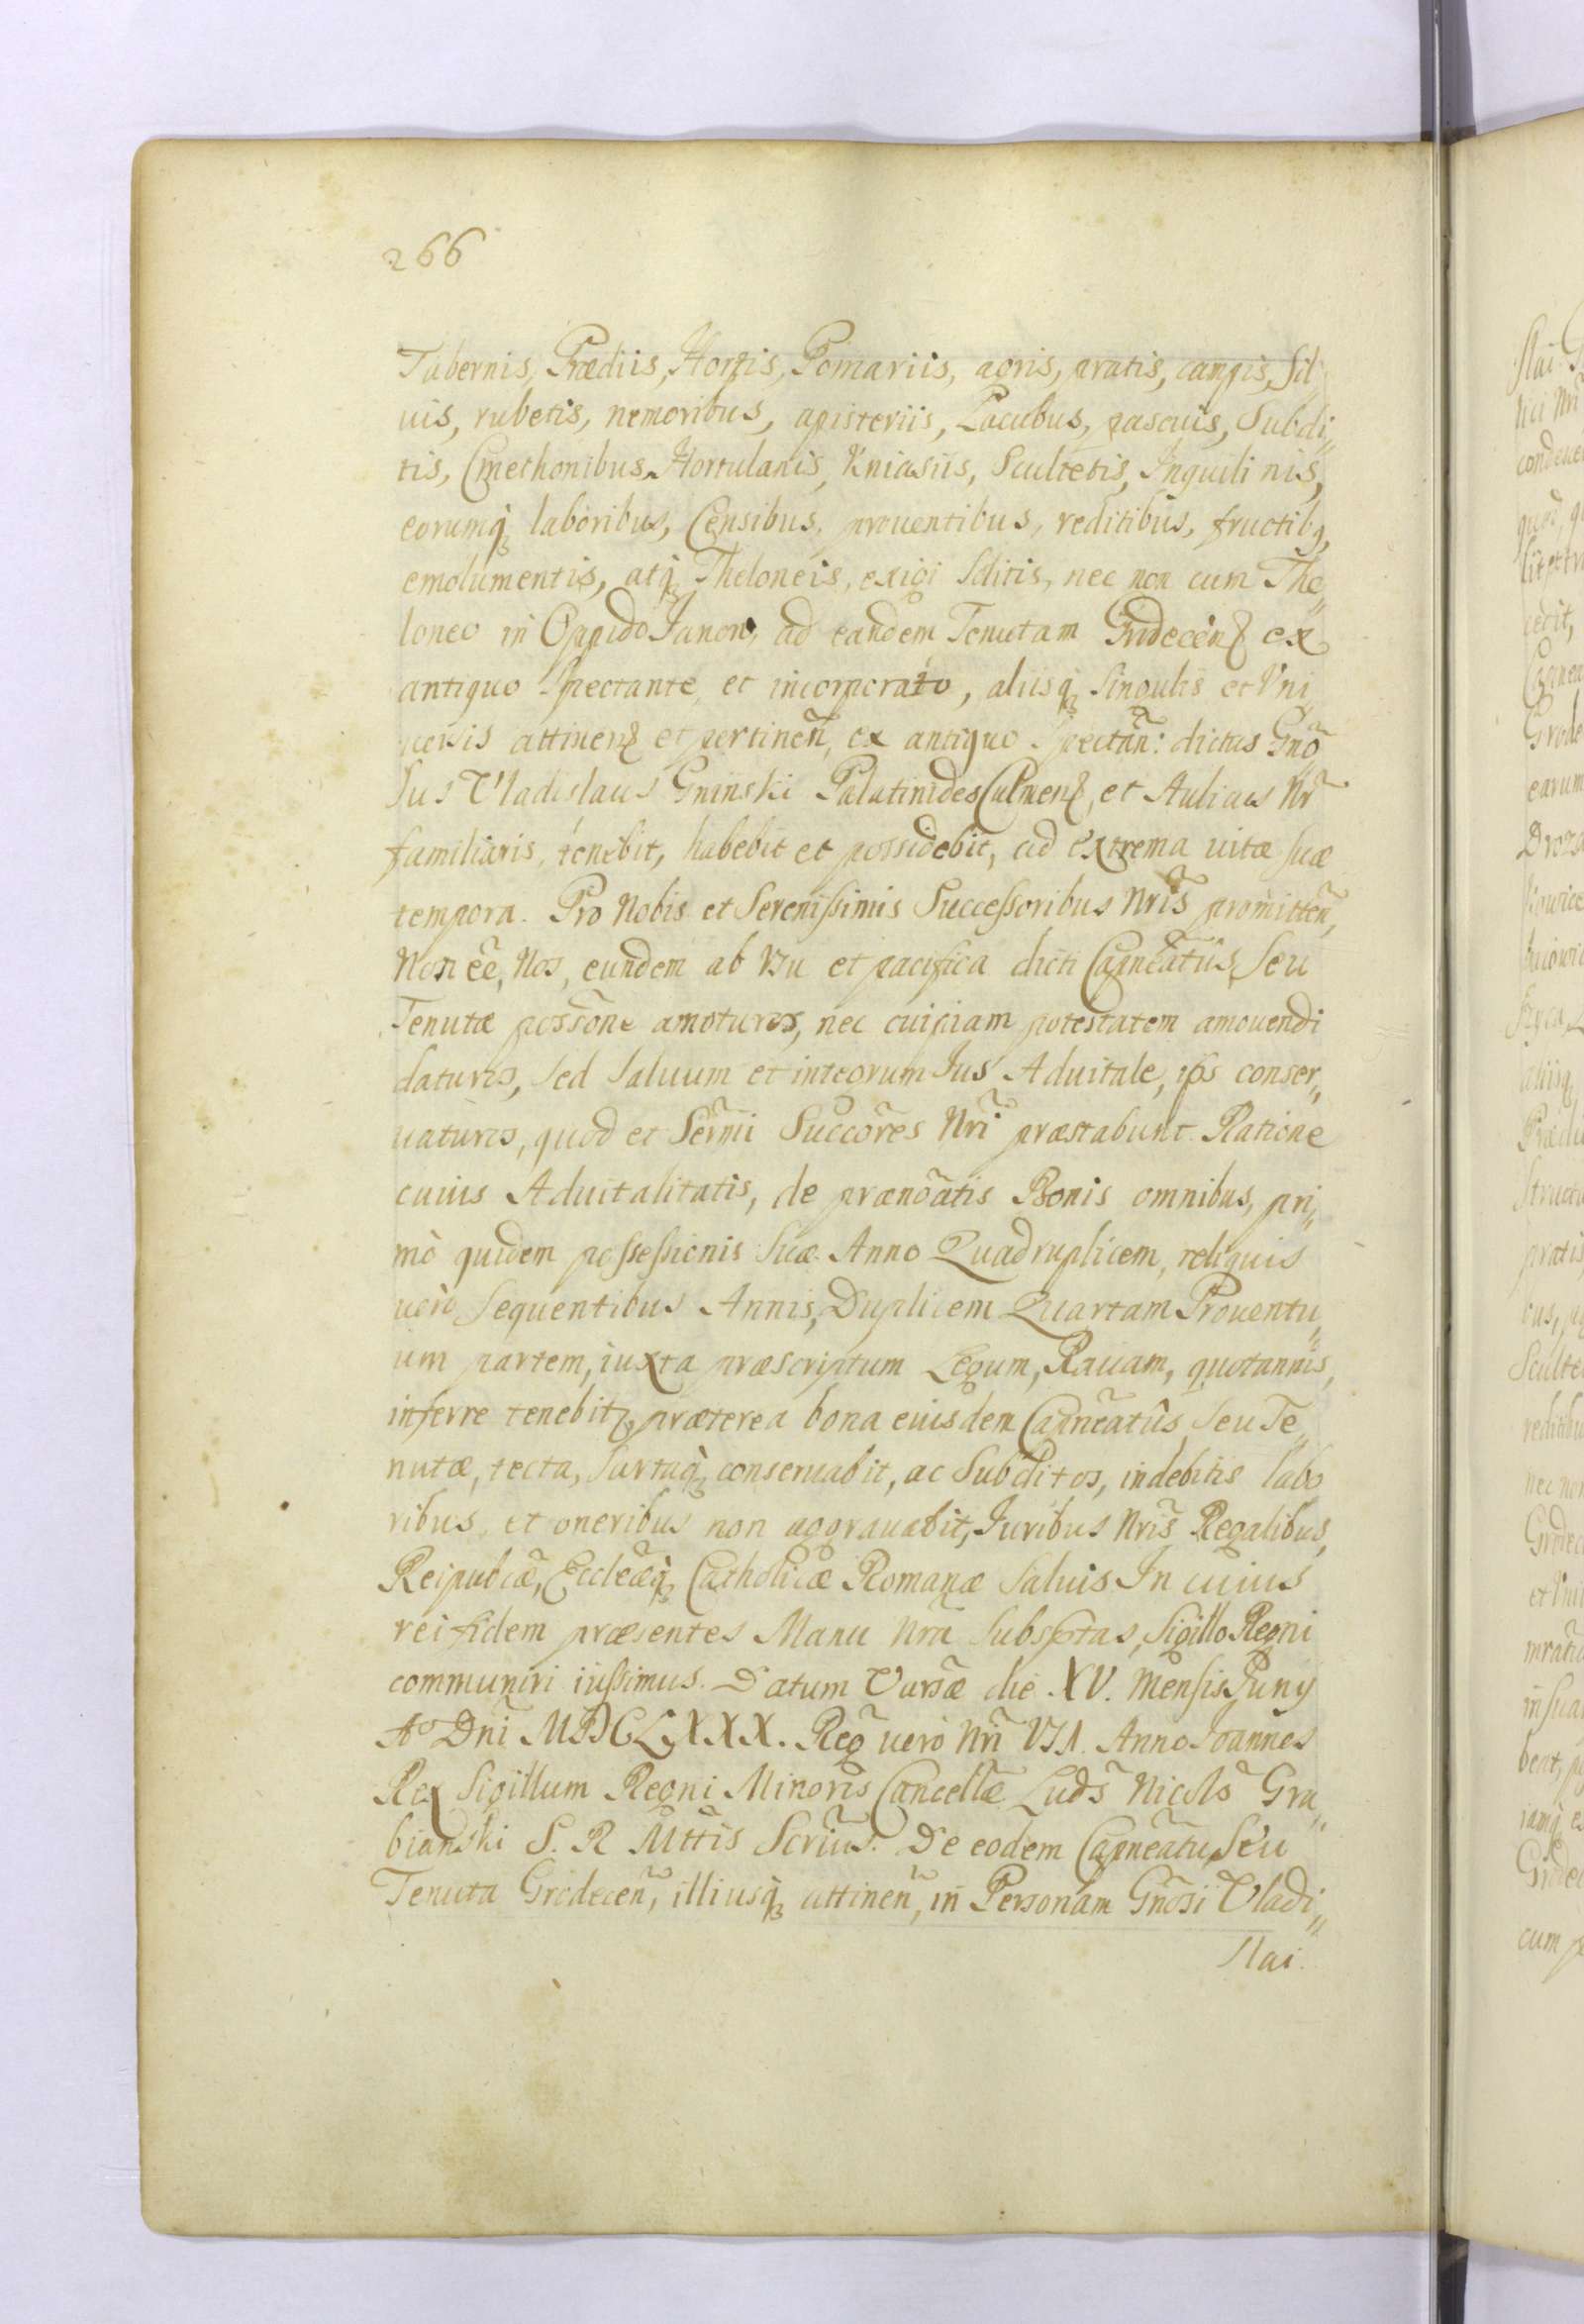 266
Tabernis, Prædiis, Hortis, Pomariis, agris, pratis, campis, Sil
uis, rubetis, nemoribus, apisteriis, Lacubus, pascuis, Subdi„
tis, Cmethonibus, Hortulanis, Kniasiis, Scultetis, Inquilinis,
eorumq́ꝫ laboribus, Censibus, prouentibus, reditibus, fructibꝯ,
emolumentis, atq́ꝫ Theloneis, exigi solitis, nec non cum The„
loneo in Oppido Janow, ad eandem Tenutam Grodecenꝭ ex
antiquo spectante, et incorporato, aliisq́ꝫ singulis et Vni
uersis attinenꝭ et pertineñ, ex antiquo Spectañ: dictus Gño
sus Vladislaus Gninski Palatinides Culmenꝭ, et Aulicus Nr̃
familiaris, tenebit, habebit et possidebit, ad extrema uitæ suæ
tempora. Pro Nobis et Serenissimis Successoribus Nr̃is promitteñ,
Non eẽ, Nos, eundem ab Vsu et pacifica dicti Capneãtûs, Seu
Tenutæ possõne amoturos, nec cuipiam potestatem amouendi
daturos, sed saluum et integrum Ius Aduitale, ip̃s conser„
uaturos, quod et Ser̃mi Succor̃es Nr̃i præstabunt. Ratione
cuius Aduitalitatis, de prænoãtis Bonis omnibus, pri„
mò quidem possessionis suæ Anno Quadruplicem, reliquis
uerò sequentibus Annis, Duplicem Quartam Prouentu„
um partem, iuxta præscriptum Legum, Rauam, quotannis,
inferre tenebitꝫ, præterea bona eiusdem Capneãtûs, seu Te„
nutæ, tecta, sartaq́ꝫ conseruabit, ac Subditos, indebitis labo
ribus, et oneribus non aggrauabit, Iuribus Nr̃is Regalibus,
Reipubcæ̃, Eccleæ̃q́ꝫ Catholicæ Romanæ Saluis. In cuius
rei fidem præsentes Manu Nr̃a Subsp̃tas, Sigillo Regni
communiri iussimus. Datum Varsæ̃ die XV. Mensis Juny
Aº Dñi MDCLXXX. Reg̃ uerò Nr̃i VII. Anno Joannes
Rex Sigillum Regni Minoris Cancellæ̃ Luds̃ Nicols̃ Gra„
bianski S. R. Mttis Scrius̃. De eodem Capneãtu, Seu
Tenuta Grodeceñ, illiusq́ꝫ attineñ, in Personam Gñosi Vladi„
slai